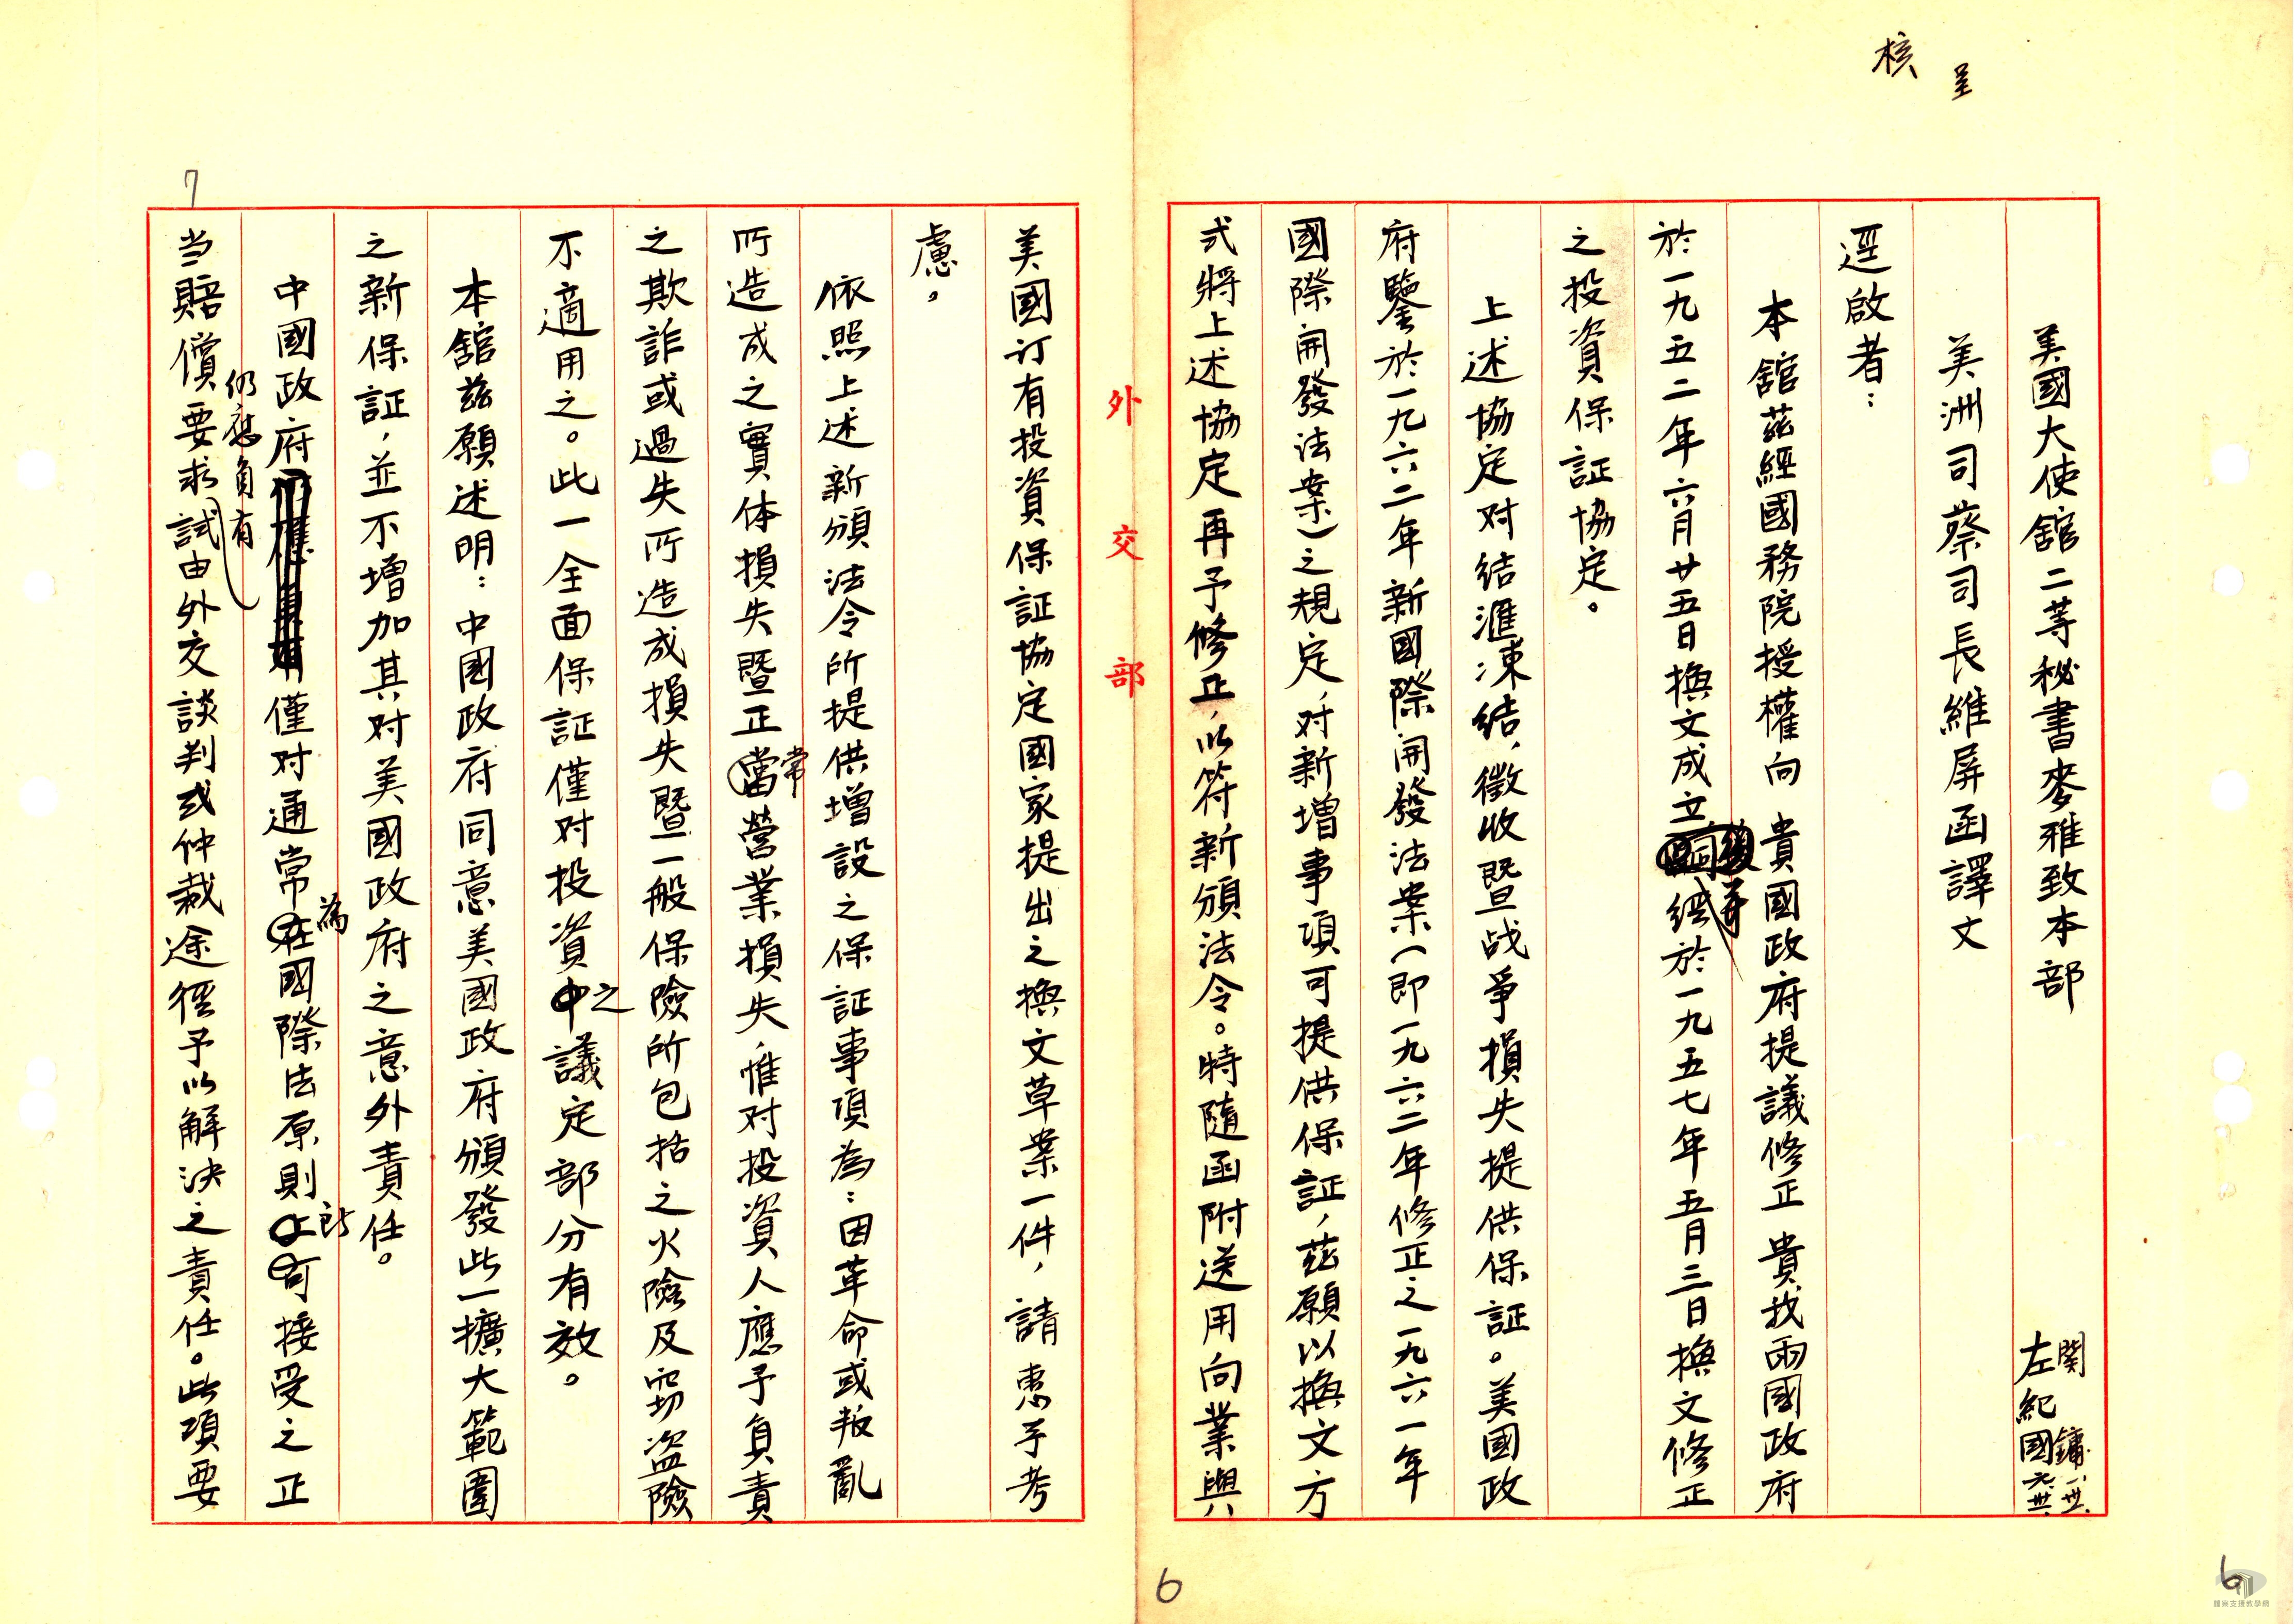 核
呈
美國大使舘二等秘書麥雅致本部
関 鏞
左紀國
美洲司蔡司長維屏函譯文
逕啟者：
本舘茲經國務院授權向 貴國政府提議修正 貴我兩國政府
於一九五二年六月廿五日換文成立後並經於一九五七年五月三日換文修正
之投資保証協定。
上述協定对結滙凍結，徵收暨战爭損失提供保証。美國政
府鑒於一九六二年新國際開發法案(即一九六二年修正之一九六一年
國際開發法案)之規定，对新增事項可提供保証，茲願以換文方
式將上述協定再予修正，以符新頒法令。特隨函附送用向業與
外交部
6
6
檔案支援教學網
美國订有投資保証協定國家提出之換文草案一件，請惠予考
慮。
依照上述新頒法令所提供增設之保証事項為：因革命或叛亂
所造成之實体損失暨正當營業損失，惟对投資人應予負責
常
之欺詐或過失所造成損失暨一般保險所包括之火險及窃盜險
不適用之。此一全面保証僅对投資中議定部分有效。
之
本舘茲願述明：中國政府同意美國政府頒發此一擴大範圍
之新保証，並不增加其对美國政府之意外責任。
中國政府僅对通常在國際法原則上可接受之正
為
所
仍應負有
当賠償要求試由外交談判或仲裁途徑予以解決之責任。此項要
7